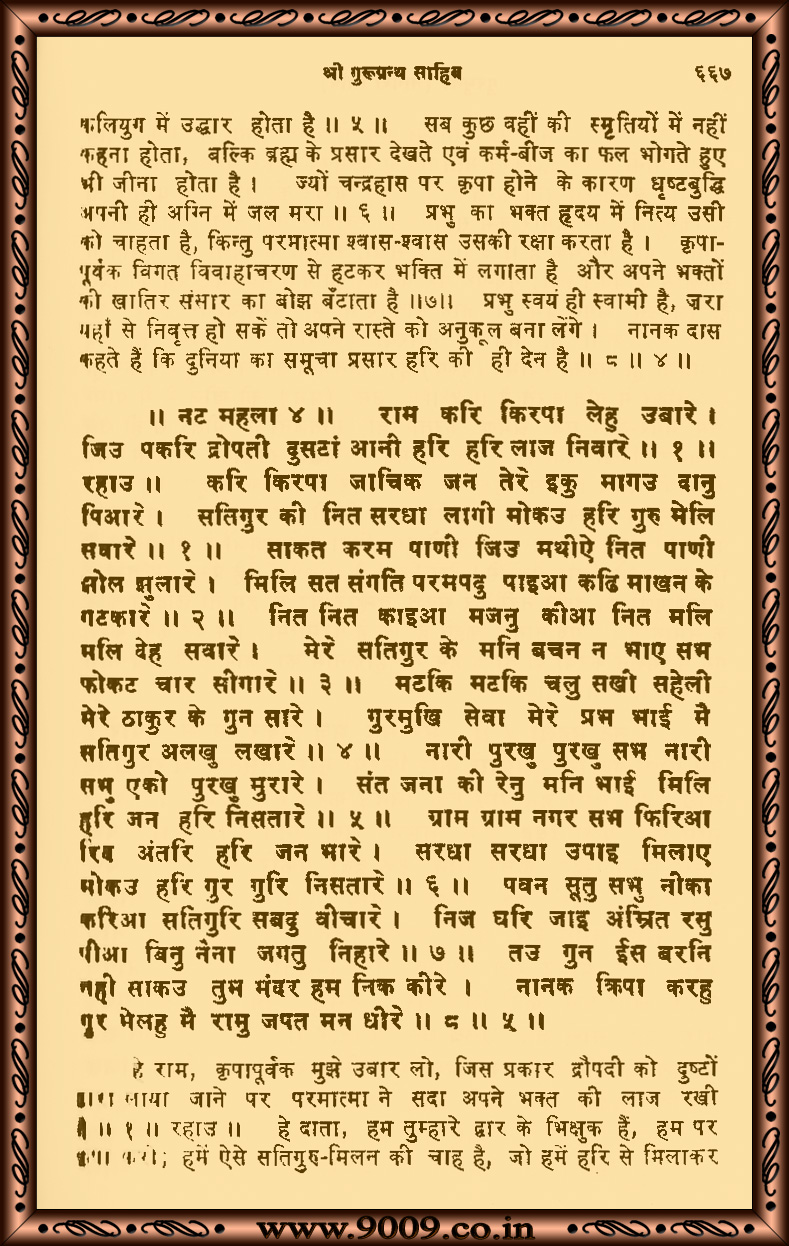 श्री गुरूग्रन्थ साहिब ६६७
कलियुग में उद्धार होता है ॥ ५ ॥ सब कुछ वहीं की स्मृतियों में नहीं
कहना होता, बल्कि ब्रह्म के प्रसार देखते एवं कर्म-बीज का फल भोगते हुए
भी जीना होता है । ज्यों चन्द्रहास पर कृपा होने के कारण धृष्टबुद्धि
अपनी ही अग्नि में जल मरा ॥ ६ ॥ प्रभु का भक्त हृदय में नित्य उसी
को चाहता है, किन्तु परमात्मा श्वास-श्वास उसकी रक्षा करता है । कृपा-
पूर्वक विगत विवाहाचरण से हटकर भक्ति में लगाता है और अपने भक्तों
की खातिर संसार का बोझ बँटाता है ॥७॥ प्रभु स्वयं ही स्वामी है, ज़रा
यहाँ से निवृत्त हो सकें तो अपने रास्ते को अनुकूल बना लेंगे । नानक दास
कहते हैं कि दुनिया का समूचा प्रसार हरि की ही देन है ॥ ८ ॥ ४ ॥
॥ नट महला ४ ॥ राम करि किरपा लेहु उबारे ।
जिउ पकरि द्रोपती दुसटां आनी हरि हरि लाज निवारे ॥ १ ॥
रहाउ ॥ करि किरपा जाचिक जन तेरे इकु मागउ दानु
पिआरे । सतिगुर की नित सरधा लागी मोकउ हरि गुरु मेलि
सवारे ॥ १ ॥ साकत करम पाणी जिउ मथीऐ नित पाणी
झोल झुलारे । मिलि सत संगति परमपदु पाइआ कढि माखन के
गटकारे ॥ २ ॥ नित नित काइआ मजनु कीआ नित मलि
मलि देह सवारे । मेरे सतिगुर के मनि बचन न भाए सभ
फोकट चार सीगारे ॥ ३ ॥ मटकि मटकि चलु सखी सहेली
मेरे ठाकुर के गुन सारे । गुरमुखि सेवा मेरे प्रभ भाई मै
सतिगुर अलखु लखारे ॥ ४ ॥ नारी पुरखु पुरखु सभ नारी
सभु एको पुरखु मुरारे । संत जना की रेनु मनि भाई मिलि
हरि जन हरि निसतारे ॥ ५ ॥ ग्राम ग्राम नगर सभ फिरिआ
रिव अंतरि हरि जन भारे । सरधा सरधा उपाइ मिलाए
मोकउ हरि गुर गुरि निसतारे ॥ ६ ॥ पवन सूतु सभु नीका
करिआ सतिगुरि सबदु वीचारे । निज घरि जाइ अंम्रित रसु
पीआ बिनु नैना जगतु निहारे ॥ ७ ॥ तउ गुन ईस बरनि
नही साकउ तुम मंदर हम निक कीरे । नानक क्रिपा करहु
गुर मेलहु मै रामु जपत मन धीरे ॥ ८ ॥ ५ ॥
हे राम, कृपापूर्वक मुझे उबार लो, जिस प्रकार द्रौपदी को दुष्टों
द्वारा लाया जाने पर परमात्मा ने सदा अपने भक्त की लाज रखी
है ॥ १ ॥ रहाउ ॥ हे दाता, हम तुम्हारे द्वार के भिक्षुक हैं, हम पर
कृपा करो; हमें ऐसे सतिगुरु-मिलन की चाह है, जो हमें हरि से मिलाकर
www.9009.co.in